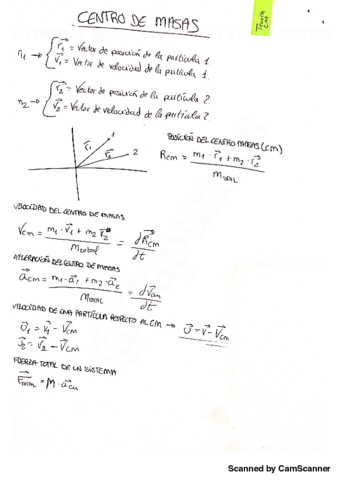 CENTRO DE MASAS
Teoría CM
m1 → r1 = Vector de posición de la partícula 1
v1 = Vector de velocidad de la partícula 1.
m2 → r2 = Vector de posición de la partícula 2.
v2 = Vector de velocidad de la partícula 2.
r1 1
r2 2
POSICIÓN DEL CENTRO MASAS (cm)
Rcm = m1 · r1 + m2 · r2 / MTOTAL
VELOCIDAD DEL CENTRO DE MASAS
Vcm = m1 · v1 + m2 r2 / Mtotal = dRcm / dt
ACELERACIÓN DEL CENTRO DE MASAS
acm = m1 · a1 + m2 · a2 / MTOTAL = dVcm / dt
VELOCIDAD DE UNA PARTÍCULA RESPECTO AL CM → U = V - Vcm
U1 = V1 - Vcm
= V2 - Vcm
FUERZA TOTAL DE UN SISTEMA
FTOTAL = M · acm
Scanned by CamScanner